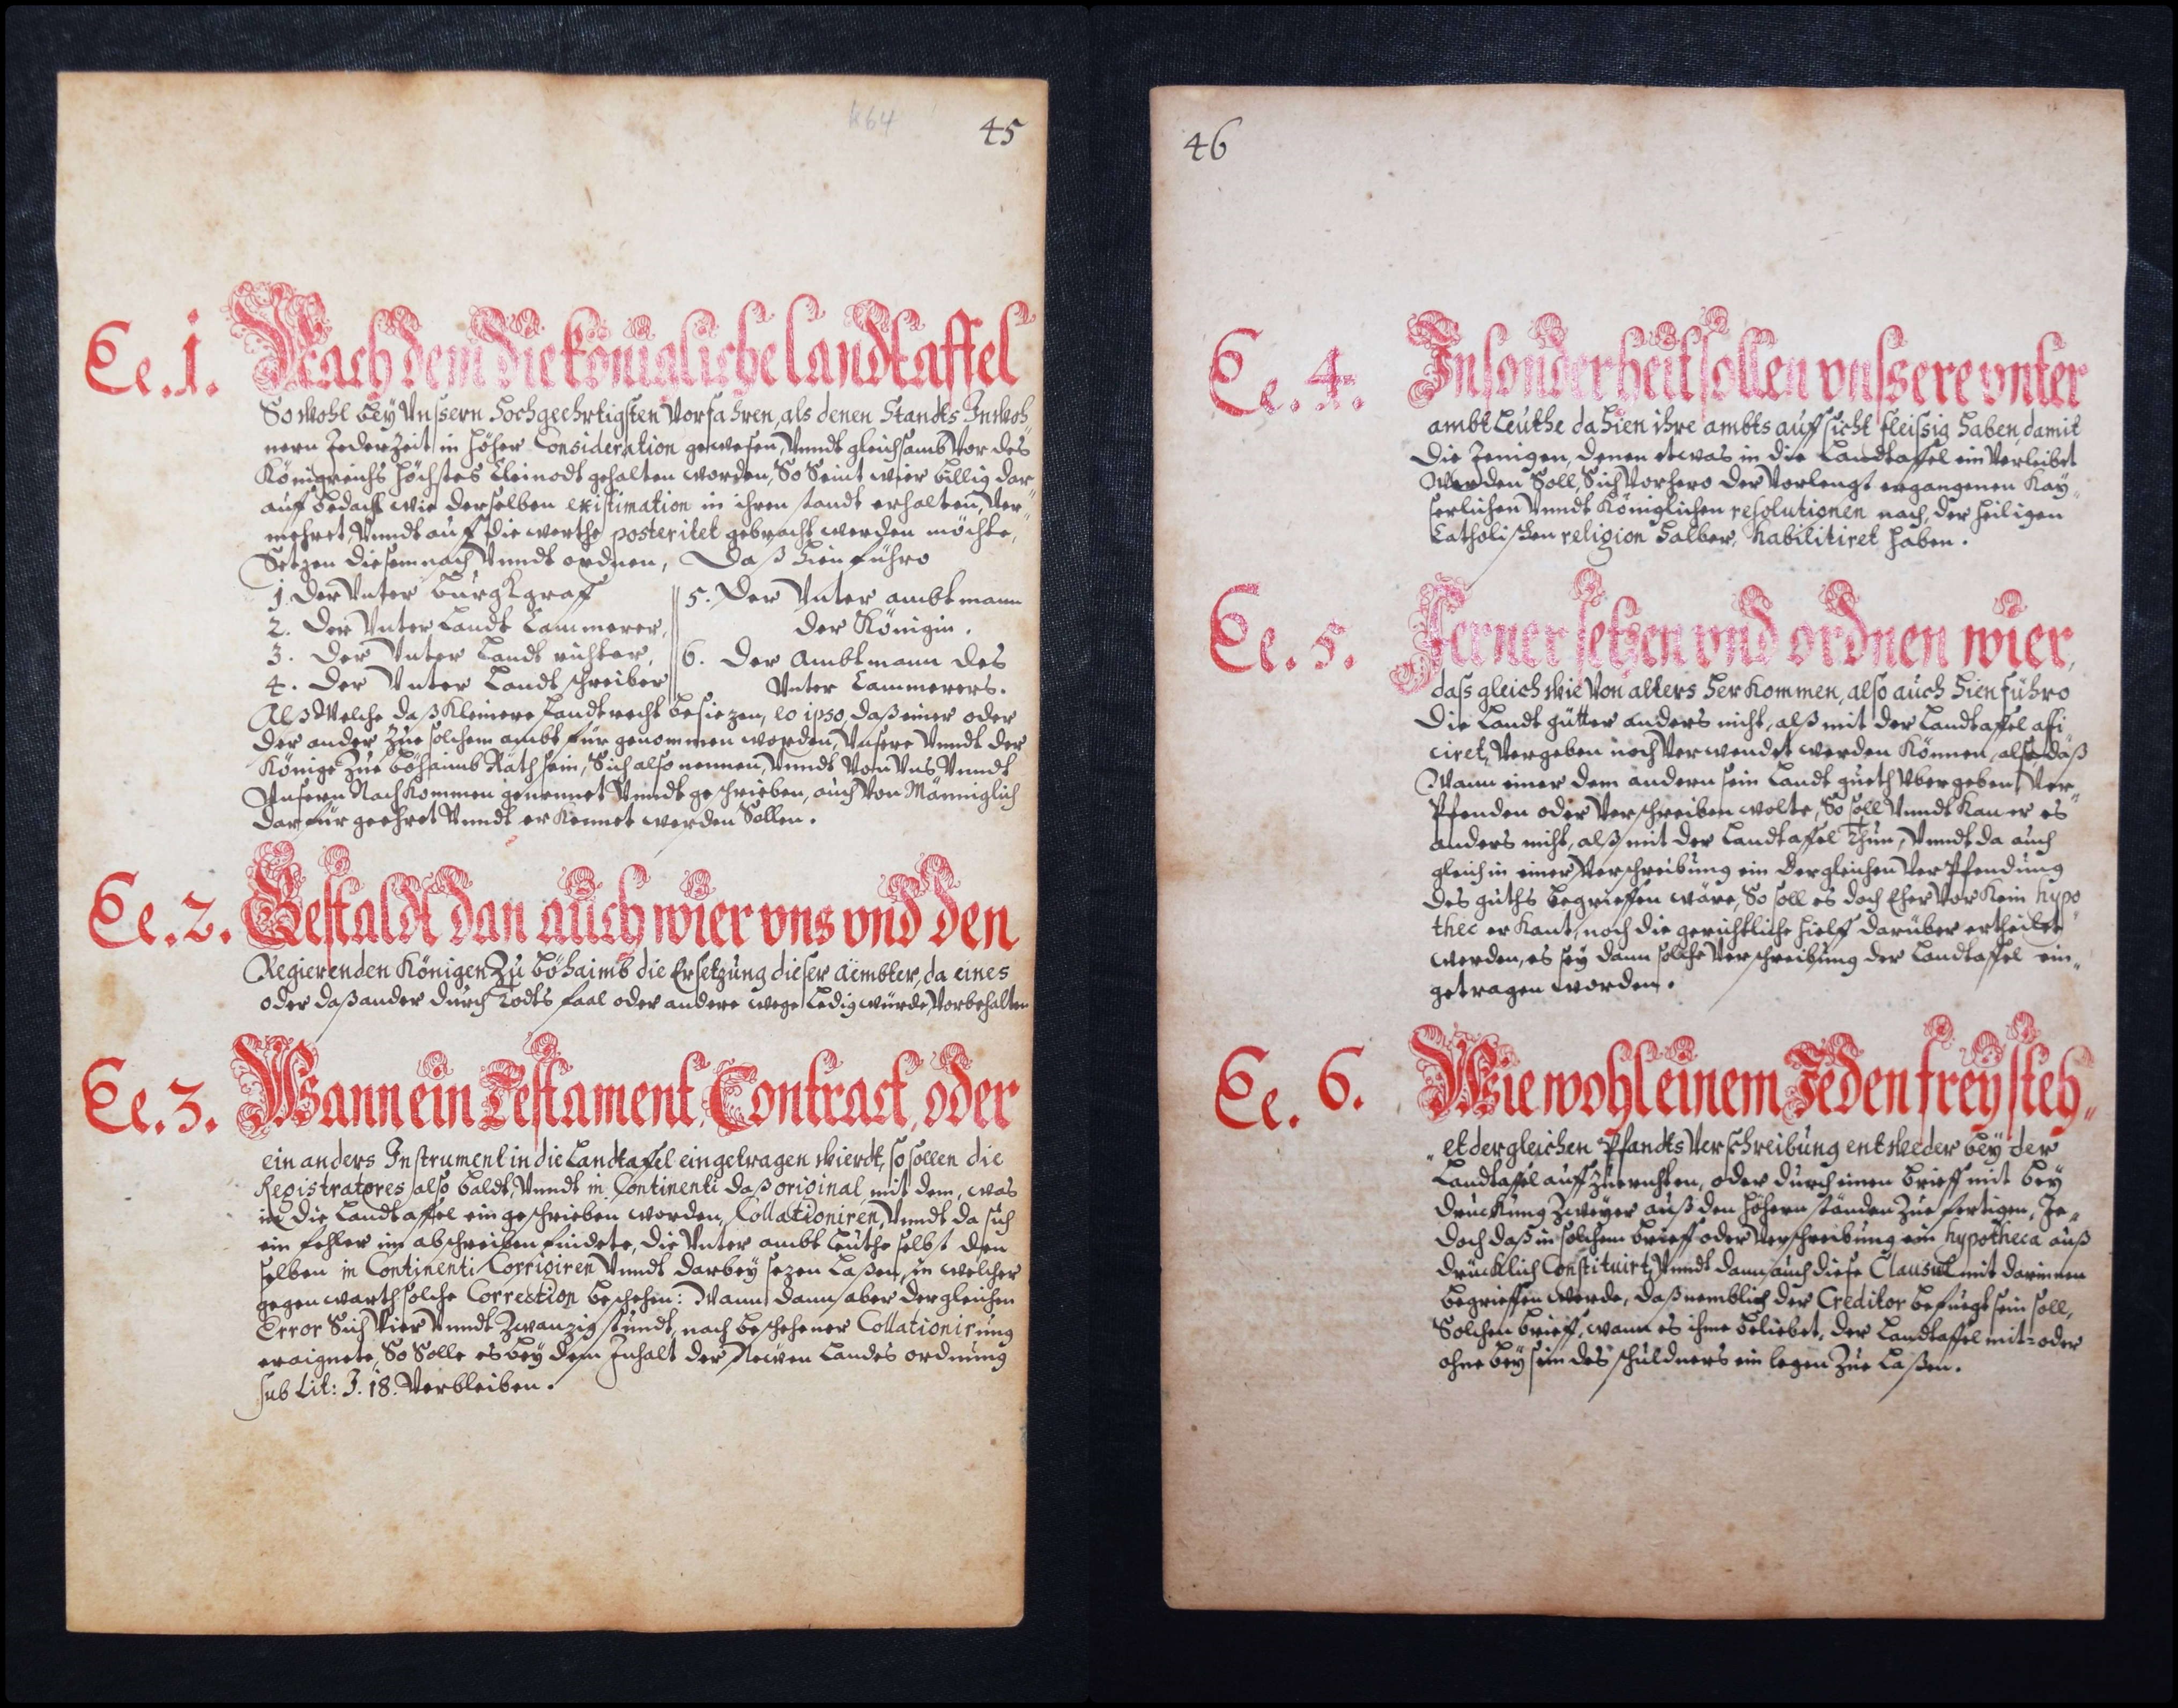 k64
45
Ee. 1. Nach dem die königliche landtaffel
So wohl bey Vnssern hochgeehrtigsten Vorfahren, als denen Standts Inwoh„
nern Jederzeit in höher Consideration gewesen, Vnndt gleichsamb Vor des
Königreichs höchstes Cleinodt gehalten worden, So Seint wier billig dar„
auff bedacht wie derselben existimation in ihren standt erhalten, Ver„
mehret, Vnndt auf die werthe posteritet gebracht werden möchte,
Setzen diesemnach Vnndt ordnen, Daß hienführo
1. Der Vnter Burgkgraff
2. Der Vnter Landt Cammerer,
3. Der Vnter Landt richter,
4. Der Vnter Landt schreiber
5. Der Vnter ambtmann
der Königin.
6. Der Ambtmann des
Vnter Cammerers.
Alß Welche daß Kleinere Landtrecht besiezen, eo ipso, daß einer oder
der ander, Zue solchem ambt für genommen worden, Vnsere Vnndt der
Könige Zue Böhaimb Räth sein, Sich also nennen, Vnndt Von Vns Vnndt
Vnsern Nach Kommen genennet Vnndt geschrieben, auch Von Männiglich
darfür geehret Vnndt erKennet werden Sollen.
Ee. 2. Gestaldt dan auch wier vns vnd den
Regierenden Königen Zu Böhaimb die Ersetzung dieser aembter, da eines
oder daß ander durch Todts faal oder andere wege Ledig würde, Vorbehalten
Ee. 3. Wann ein Testament, Contract, oder
ein anders Instrument in die Landtafel eingetragen wierdt, so sollen die
Registratores also baldt, Vnndt in Continenti daß original mit dem, was
in die Landtaffel eingeschrieben worden, Collationiren, Vnndt da sich
ein fehler im abschreiben findete, die Vnter ambt Leuthe selbst den
selben in Continenti Corrigiren Vnndt darbey sezen Laßen, in welcher
gegenwarth solche Correction beschehen: Wann dann aber dergleichen
Error Sich Vier Vnndt Zwanzig stundt, nach beschehener Collationirung
eraignete, So Solle es bey dem Inhalt der Newen Landes ordnung
sub Lit: J. 18. Verbleiben.
46
Ee. 4. Insonderheit sollen vnssere vnter
ambt Leuthe dahien ihre ambts auffsicht fleissig haben, damit
die Jenigen, denen etwas in die Landtaffel ein Verleibet
Werden Soll, Sich Vorhero der Vorlengt ergangenen Kay„
serlichen Vnndt Königlichen resolutionen nach, der heiligen
Catholischen religion halber, habilitiret haben.
Ee. 5. Ferner setzen vnd ordnen wier,
dass gleich wie Von alters her Kommen, also auch hienführo
die Landt gütter anders nicht, alß mit der Landtaffel affi„
ciret, Vergeben noch Verwendet werden Können, also daß
Wann einer dem andern sein Landt gueth Vbergeben, Ver„
Pfenden oder Verschreiben wolte, So soll Vnndt Kan er es
anders nicht, alß mit der Landtaffel Thun, Vnndt da auch
gleich in einer Verschreibung ein dergleichen VerPfendung
des guths begrieffen wäre, So soll es doch Eher Vor Kein hypo„
thec erKant, noch die gerichtliche hielff darüber ertheilet
werden, es sey dann solche Verschreibung der Landtaffel ein„
getragen worden.
Ee. 6. Wie wohl einem Jeden frey steh„
„et dergleichen Pfandts Verschreibung entweder bey der
Landtaffel auffzuerichten, oder durch einen brieff mit bey
druckung Zweyer auß den höhern ständen Zue fertigen, Je„
doch daß in solchem brieff oder Verschreibung ein hypotheca auß
drücklich Constituirt, Vnndt dann auch diese Clausul mit darinnen
begrieffen werde, daß nemblich der Creditor befuegt sein soll,
Solchen brieff, wann es ihme beliebet, der Landtaffel mit= oder
ohne beysein des schuldners ein legen Zue Laßen.